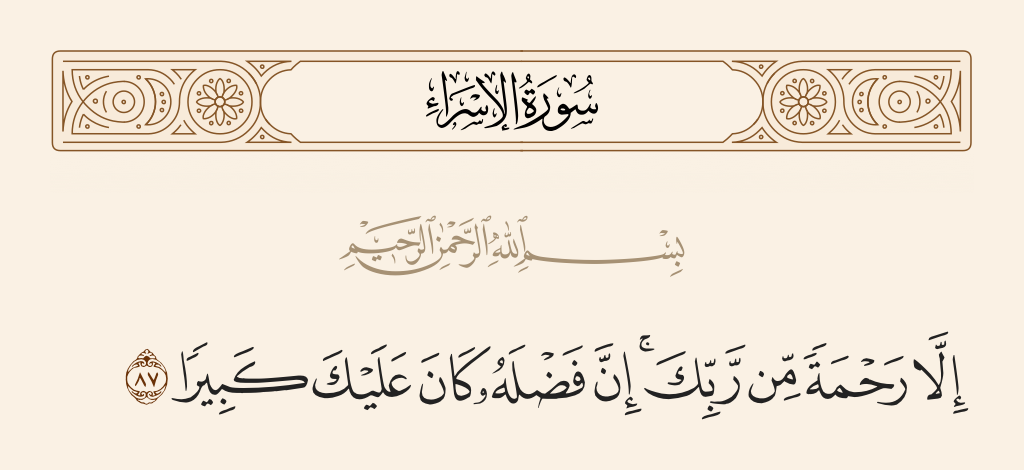 سُورَةُ الإِسْرَاءِ
بِسْمِ ٱللَّهِ ٱلرَّحْمَٰنِ ٱلرَّحِيمِ
إِلَّا رَحْمَةً مِّن رَّبِّكَ ۚ إِنَّ فَضْلَهُۥ كَانَ عَلَيْكَ كَبِيرًا ٨٧